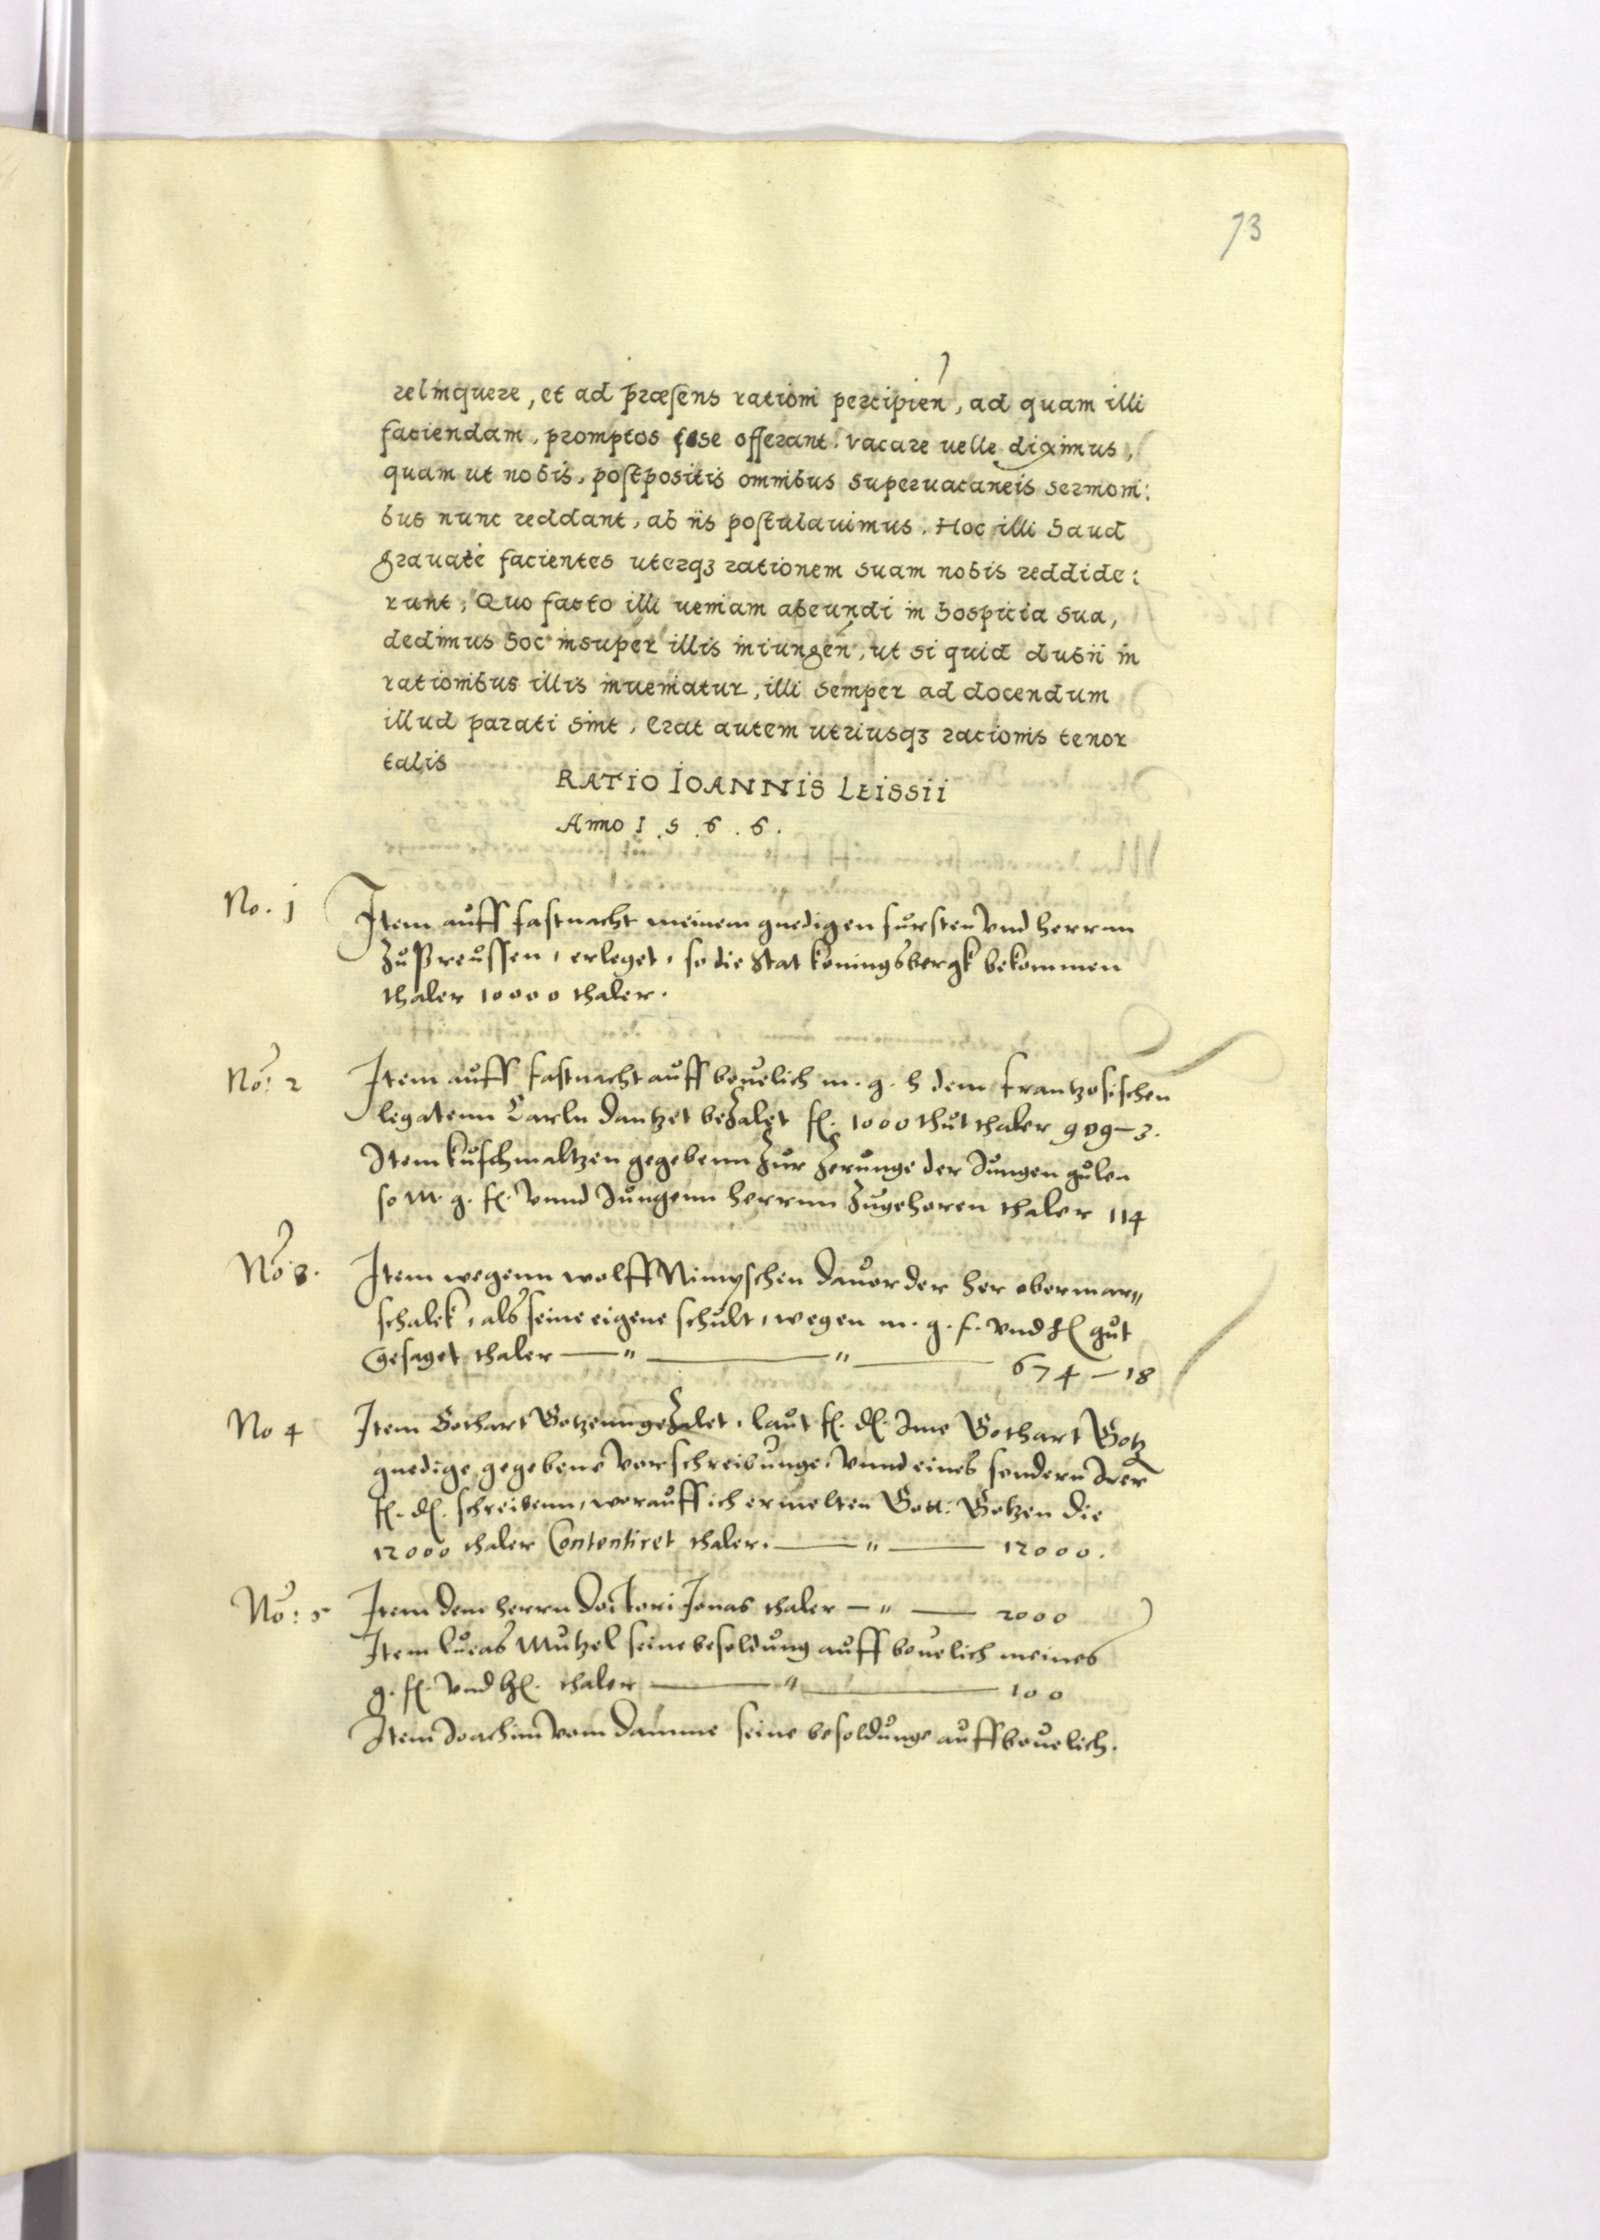 73
relinquere, et ad præsens rationi percipien, ad quam illi
faciendam, promptos sese offerant. vacare uelle diximus,
quam ut nobis, postpositis omnibus superuacaneis sermoni:
bus nunc reddant, ab iis postulauimus. Hoc illi haud
grauatè facientes uterqȝ rationem suam nobis reddide:
runt, Quo facto illi ueniam abeundi in hospitia sua,
dedimus hoc insuper illis iniungen, ut si quid dubii in
rationibus illis inueniatur, illi semper ad docendum
illud parati sint, Erat autem utriusqȝ rationis tenor
talis
RATIO IOANNIS LEISSII
Anno 1.5.6.6.
No. 1 Item auff fastnacht meinem gnedigen fursten vnd herrnn
zu Preussen, erleget, so die Stat koningsbergk bekommen
thaler 10000 thaler.
No: 2 Item auff fastnacht auff beuelich m. g. h dem frantzosischen
legatenn Carln dantzet bezalet fl. 1000 thut thaler 909–3.
Item kuschmaltzen gegebenn zur zerunge der Jungen gulen
so m. g. f. vnnd Jungenn herrnn zugehoren thaler 114
No: 3. Item wegenn wolff Nimyschen dauor der her obermar//
schalck, als seine eigene schult, wegen m. g. f. vnd h gut
gesaget thaler — " — " — 674 – 18
No 4 Item Gothart Gotzenn gezalet, laut f. d. Ime Gothart Gotz
gnedige gegebene vorschreibunge, vnnd eines sondern Irer
f. d. schreibenn, worauff ich ermelten Gott: Gotzen die
12000 thaler Contentiret thaler. — " — 12000.
No: 5 Item dem herrn doctori Jonas thaler – " — 2000
Item lucas Mutzel seine besoldung auff beuelich meines
g. f. vnd h. thaler — " — 100
Item Joachim vom damme seine besoldunge auff beuelich.